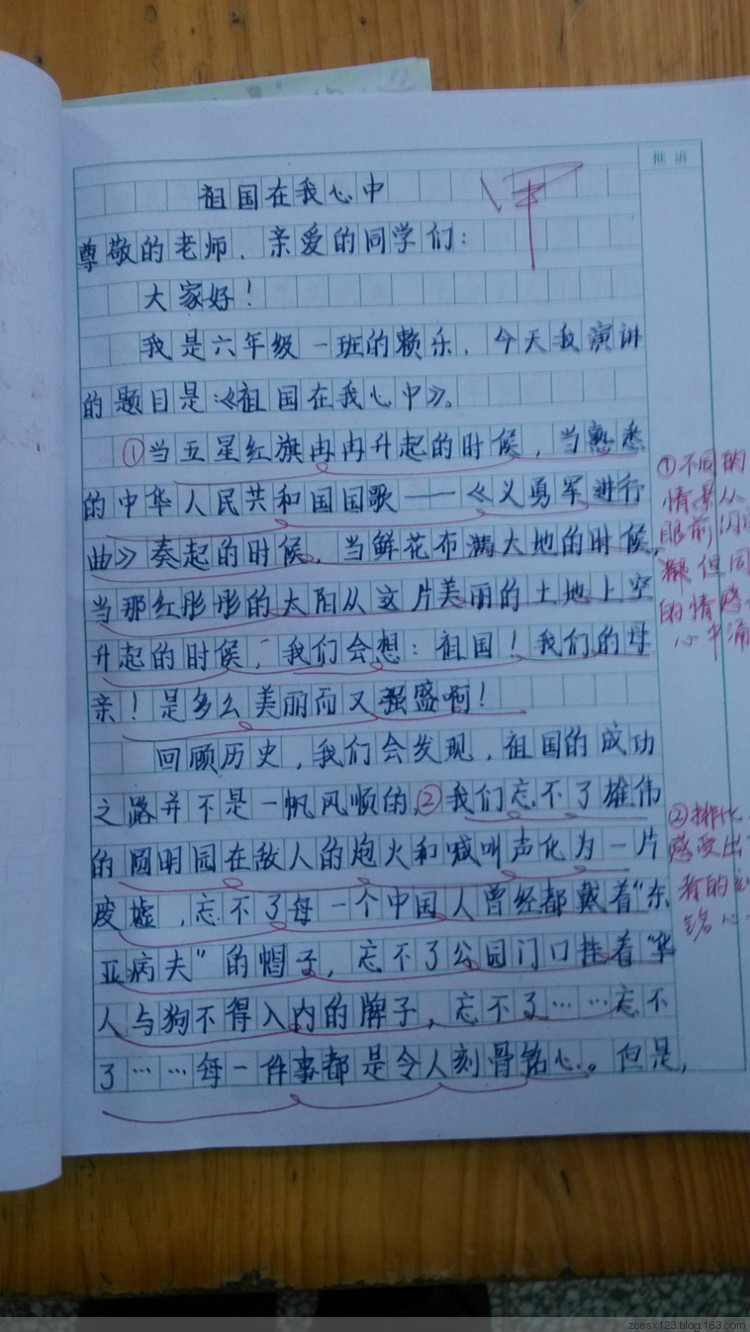 批语
祖国在我心中
尊敬的老师、亲爱的同学们：
大家好！
我是六年级一班的赖乐，今天我演讲
的题目是：《祖国在我心中》。
①当五星红旗冉冉升起的时候，当熟悉
的中华人民共和国国歌——《义勇军进行
曲》奏起的时候，当鲜花布满大地的时候，
当那红彤彤的太阳从这片美丽的土地上空
升起的时候，我们会想：祖国！我们的母
亲！是多么美丽而又强盛啊！
回顾历史，我们会发现，祖国的成功
之路并不是一帆风顺的，②我们忘不了雄伟
的圆明园在敌人的炮火和喊叫声化为一片
废墟，忘不了每一个中国人曾经都戴着“东
亚病夫”的帽子，忘不了公园门口挂着“华
人与狗不得入内的牌子，忘不了……忘不
了……每一件事都是令人刻骨铭心。但是，
①不同的
情景从
眼前闪
但同
的情感
心中涌
②排比
感受出
铭心
zcesx123.blog.163.com